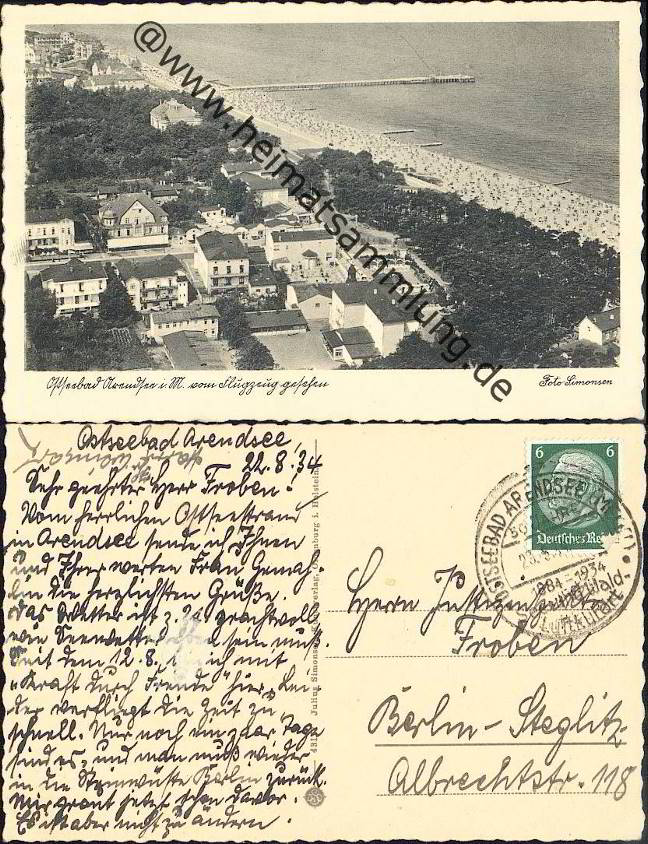 @www.heimatsammlung.de
Ostseebad Arendsee i. M. vom Flugzeug gesehen
Foto Simonsen
Ostseebad Arendsee,
22.8.34
Sehr geehrter Herr Froben!
Vom herrlichen Ostseestrand
in Arendsee sende ich Ihnen
und Ihrer werten Frau Gemah-
lin die herzlichsten Grüße.
Das Wetter ist z. Zt. prachtvoll
wie Seewetter eben sein muß.
Seit dem 12.8. ich mit
„Kraft durch Freude" hier. Lei-
der verfliegt die Zeit zu
schnell. Nur noch ein paar Tage
sind es, und man muß wieder
in die Steinwüste Berlin zurück.
Mir graut jetzt schon davor.
Es ist aber nicht zu ändern.
Julius Simonsen, Oldenburg i. Holstein
6 6
Deutsches Reich
OSTSEEBAD ARENDSEE
1884-1934
Luftkurort
Herrn Justizinsp
Froben
Berlin-Steglitz
Albrechtstr. 118